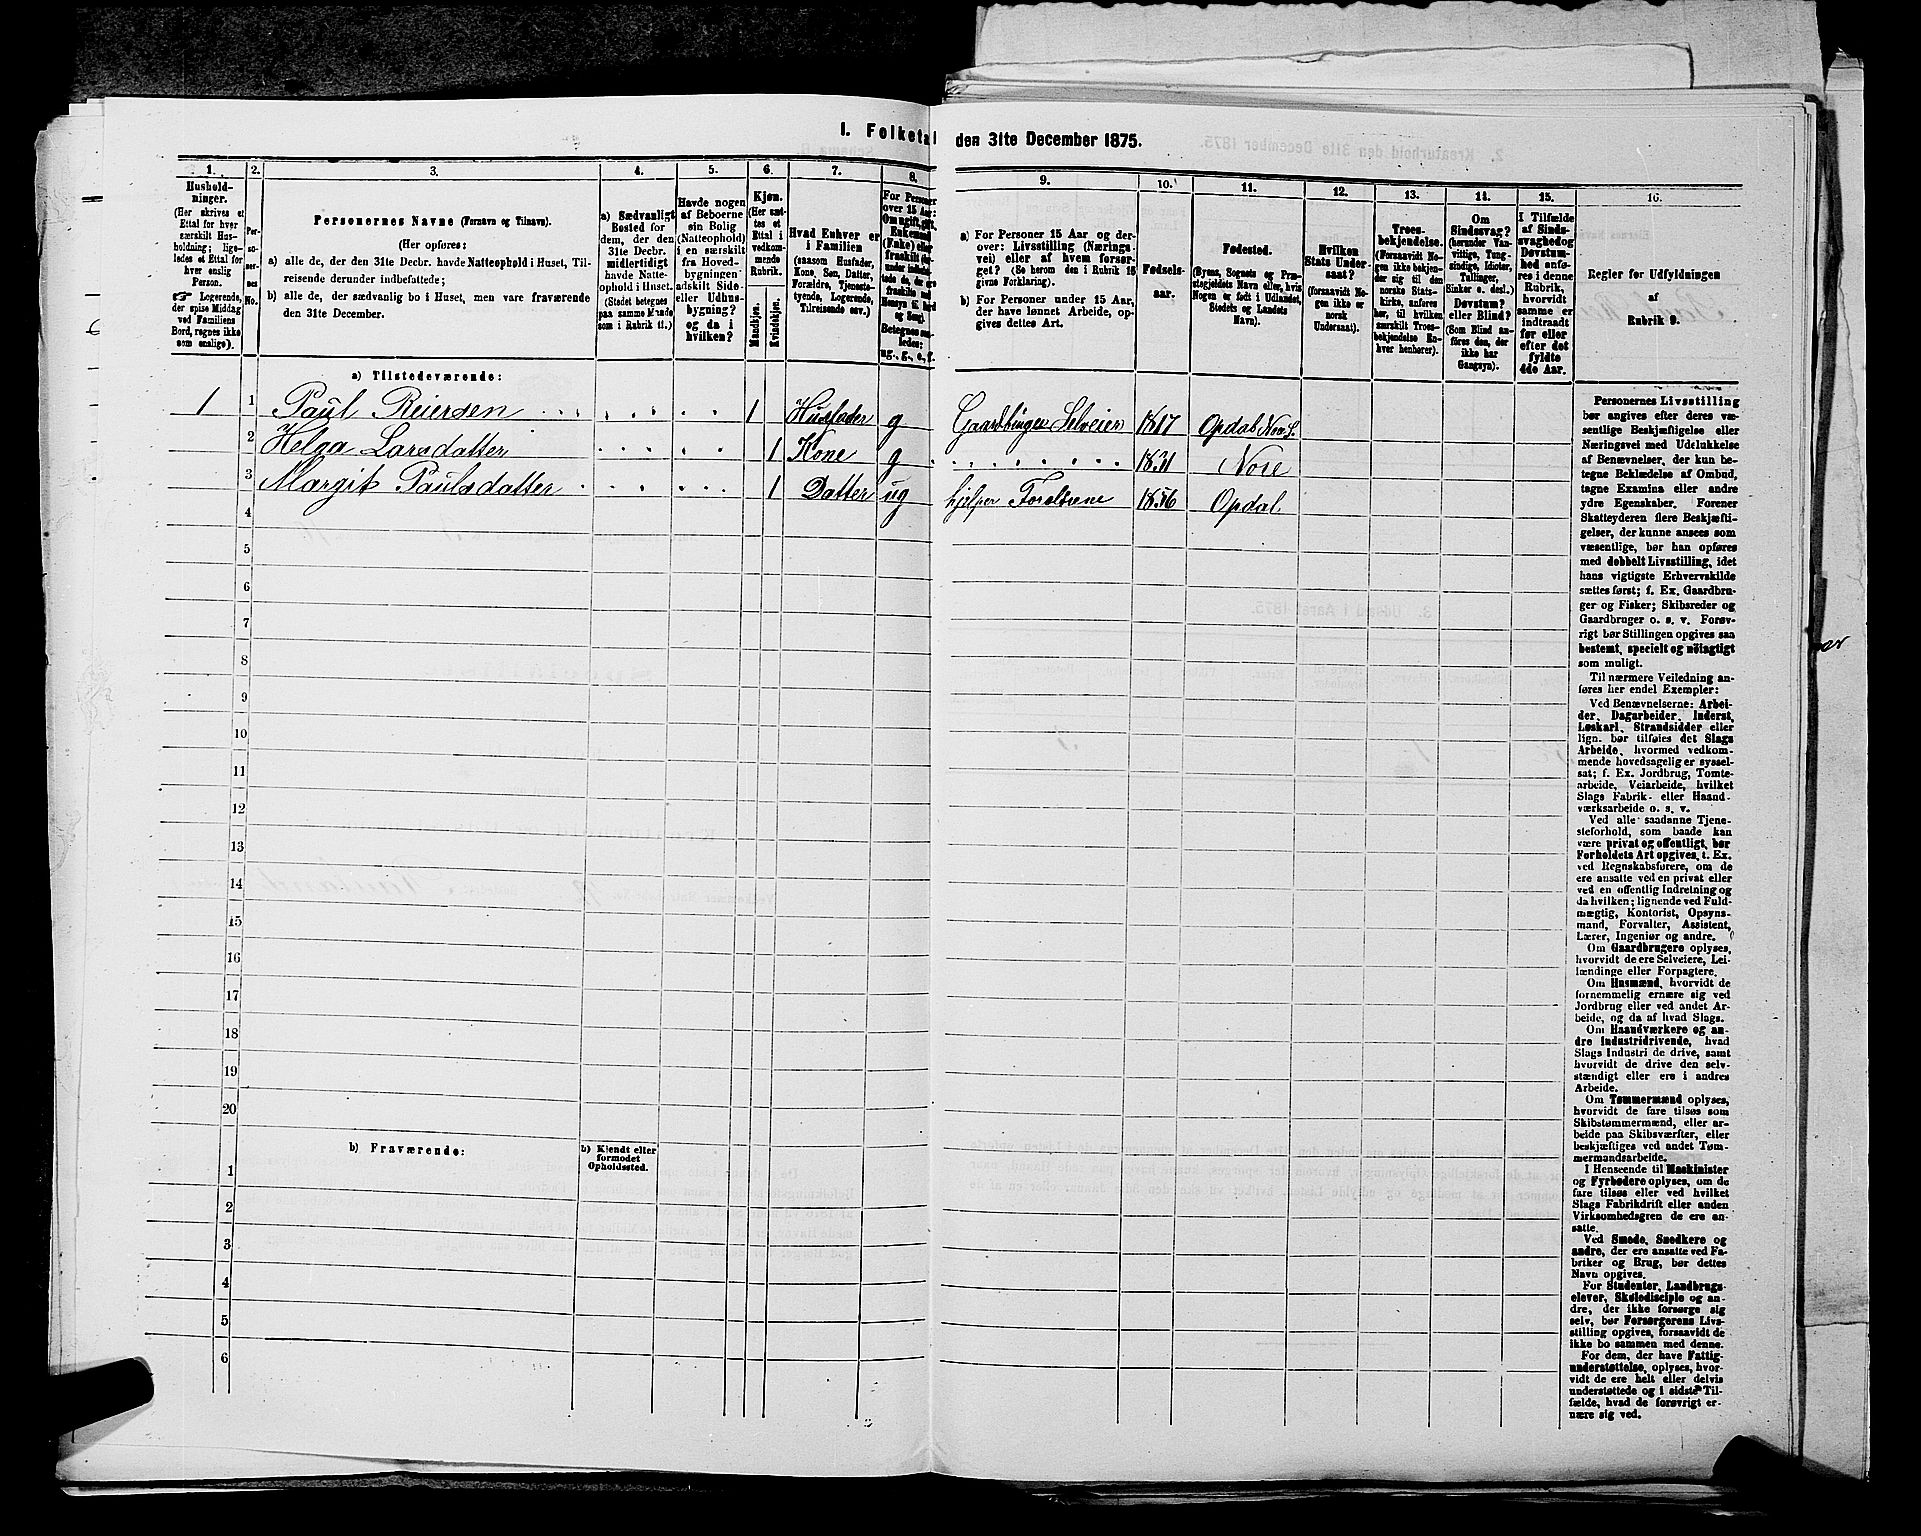 I. Folketal den 31te December 1875.
1.
Hushold-
ninger.
(Her skrives et
Ettal for hver
særskilt Hus-
holdning; lige-
ledes et Ettal for
hver enslig
Person.
☞ Logerende,
der spise Middag
ved Familiens
Bord, regnes ikke
som enslige).
2.
Per-
so-
ner-
nes
No.
3.
Personernes Navne (Fornavn og Tilnavn).
(Her opføres:
a) alle de, der den 31te Decbr. havde Natteophold i Huset, Til-
reisende derunder indbefattede;
b) alle de, der sædvanlig bo i Huset, men vare fraværende
den 31te December.
4.
a) Sædvanligt
Bosted for
dem, der den
31te Decbr.
midlertidigt
havde Natte-
ophold i Huset.
(Stedet betegnes
paa samme Maade
som i Rubrik 11.)
5.
Havde nogen
af Beboerne
sin Bolig
(Natteophold)
i en særskilt
fra Hoved-
bygningen
adskilt Side-
eller Udhus-
bygning?
og da i
hvilken?
6.
Kjøn.
(Her sæt-
tes et
Ettal i
vedkom-
mende
Rubrik.
Mandkjøn.
Kvindekjøn.
7.
Hvad Enhver er
i Familien
(saasom Husfader,
Kone, Søn, Datter,
Forældre, Tjeneste-
tyende, Logerende,
Tilreisende osv.)
8.
For Personer
over 15 Aar:
Om ugift, gift,
Enkemand
(Enke) eller
fraskilt
Betegnes saa-
ledes:
ug., g., e., f.
9.
a) For Personer 15 Aar og der-
over: Livsstilling (Nærings-
vei) eller af hvem forsør-
get? (Se herom den i Rubrik 16
givne Forklaring).
b) For Personer under 15 Aar,
der have lønnet Arbeide, op-
gives dettes Art.
10.
Fødsels-
aar.
11.
Fødested.
(Byens, Sognets og Præ-
stegjeldets Navn eller, hvis
Nogen er født i Udlandet,
Stedets og Landets
Navn).
12.
Hvilken
Stats Under-
saat?
(forsaavidt No-
gen ikke er
norsk
Undersaat).
13.
Troes-
bekjendelse.
(Forsaavidt No-
gen ikke bekjen-
der sig til den
norske Stats-
kirke, anføres
her, til hvilken
særskilt Troes-
bekjendelse En-
hver henhører).
14.
Om
Sindssvag?
(herunder Van-
vittige, Tung-
sindige, Idioter,
Tullinger,
Sinker o. desl.)
Døvstum?
eller Blind?
(Som Blind an-
føres den, der
ikke har
Gangsyn).
15.
I Tilfælde
af Sinds-
svaghed og
Døvstum-
hed anfø-
res i denne
Rubrik,
hvorvidt
samme er
indtraadt
før eller
efter det
fyldte
4de Aar.
16.
Regler for Udfyldningen
af
Rubrik 9.
a) Tilstedeværende:
1 1 Paul Reiersen 1 Husfader g Gaardbruger Selveier 1817 Opdal Nore S.
2 Helga Larsdatter 1 Kone g 1831 Nore
3 Margit Paulsdatter 1 Datter ug hjelper Forældrene 1856 Opdal
4
5
6
7
8
9
10
11
12
13
14
15
16
17
18
19
20
b) Fraværende:
b) Kjendt eller
formodet
Opholdssted.
1
2
3
4
5
6
Personernes Livsstilling
bør angives efter deres væ-
sentlige Beskjæftigelse eller
Næringsvei med Udelukkelse
af Benævnelser, der kun be-
tegne Beklædelse af Ombud,
tagne Examina eller andre
ydre Egenskaber. Forener
Skatteyderen flere Beskjæfti-
gelser, der kunne ansees som
væsentlige, bør han opføres
med dobbelt Livsstilling, idet
hans vigtigste Erhvervskilde
sættes først; f. Ex. Gaardbru-
ger og Fisker; Skibsreder og
Gaardbruger o. s. v. Forøv-
rigt bør Stillingen opgives saa
bestemt, specielt og nöiagtigt
som muligt.
Til nærmere Veiledning an-
føres her endel Exempler:
Ved Benævnelserne: Arbei-
der, Dagarbeider, Inderst,
Løskarl, Strandsidder eller
lign. bør tilføies det Slags
Arbeide, hvormed vedkom-
mende hovedsagelig er syssel-
sat; f. Ex. Jordbrug, Tomte-
arbeide, Veiarbeide, hvilket
Slags Fabrik- eller Haand-
værksarbeide o. s. v.
Ved alle saadanne Tjene-
steforhold, som baade kan
være privat og offentligt, bør
Forholdets Art opgives, t. Ex.
ved Regnskabsførere, om de
ere ansatte ved en privat eller
ved en offentlig Indretning og
da hvilken; lignende ved Fuld-
mægtig, Kontorist, Opsyns-
mand, Forvalter, Assistent,
Lærer, Ingeniør og andre.
Om Gaardbrugere oplyses,
hvorvidt de ere Selveiere, Lei-
lændinge eller Forpagtere.
Om Husmænd, hvorvidt de
fornemmelig ernære sig ved
Jordbrug eller ved andet Ar-
beide, og da af hvad Slags.
Om Haandværkere og an-
dre Industridrivende, hvad
Slags Industri de drive, samt
hvorvidt de drive den selv-
stændigt eller ere i andres
Arbeide.
Om Tømmermænd oplyses,
hvorvidt de fare tilsøs som
Skibstømmermænd, eller ar-
beide paa Skibsværfter, eller
beskjæftiges ved andet Tøm-
mermandsarbeide.
I Henseende til Maskinister
og Fyrbødere oplyses, om de
fare tilsøs eller ved hvilket
Slags Fabrikdrift eller anden
Virksomhedsgren de ere an-
satte.
Ved Smede, Snedkere og
andre, der ere ansatte ved Fa-
briker og Brug, bør dettes
Navn opgives.
For Studenter, Landbrugs-
elever, Skoledisciple og an-
dre, der ikke forsørge sig
selv, bør Forsørgerens Livs-
stilling opgives, forsaavidt de
ikke bo sammen med denne.
For dem, der have Fattig-
understøttelse, oplyses, hvor-
vidt de ere helt eller delvis
understøttede og i sidste Til-
fælde, hvad de forøvrigt er-
nære sig ved.